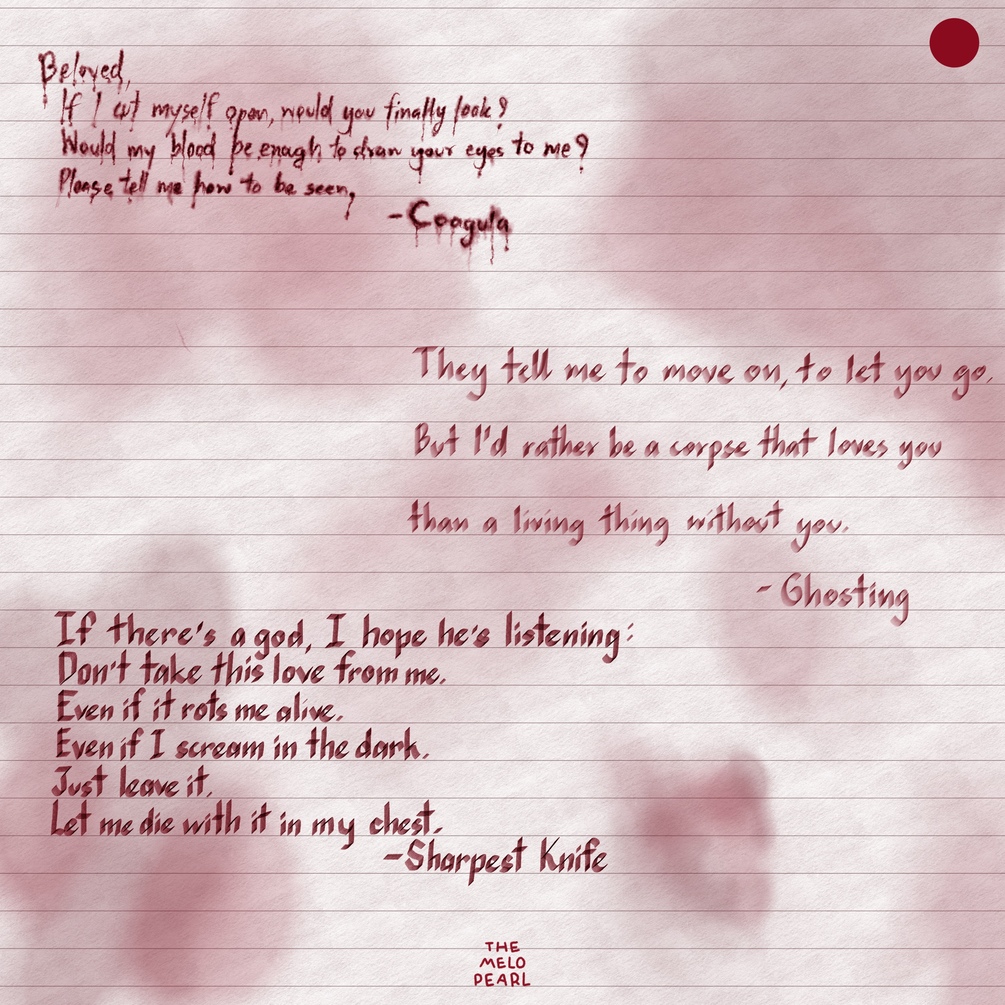 Beloved,
If I cut myself open, would you finally look?
Would my blood be enough to draw your eyes to me?
Please tell me how to be seen,
-Coagula
They tell me to move on, to let you go.
But I'd rather be a corpse that loves you
than a living thing without you.
- Ghosting
If there's a god, I hope he's listening:
Don't take this love from me.
Even if it rots me alive.
Even if I scream in the dark.
Just leave it.
Let me die with it in my chest.
-Sharpest Knife
THE
MELO
PEARL